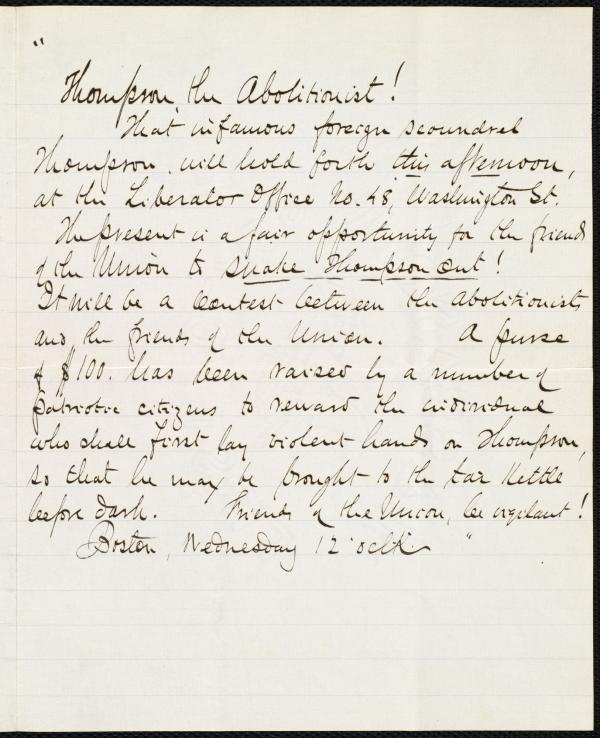 "
Thompson, the Abolitionist!
That infamous foreign scoundrel
Thompson, will hold forth this afternoon,
at the Liberator Office No. 48, Washington St.
The present is a fair opportunity for the friends
of the Union to snake Thompson out!
It will be a contest between the abolitionists
and the friends of the Union. A purse
of $100. has been raised by a number of
patriotic citizens to reward the individual
who shall first lay violent hands on Thompson,
so that he may be brought to the tar kettle
before dark. Friends of the Union, be vigilant!
Boston, Wednesday 12 oclk "